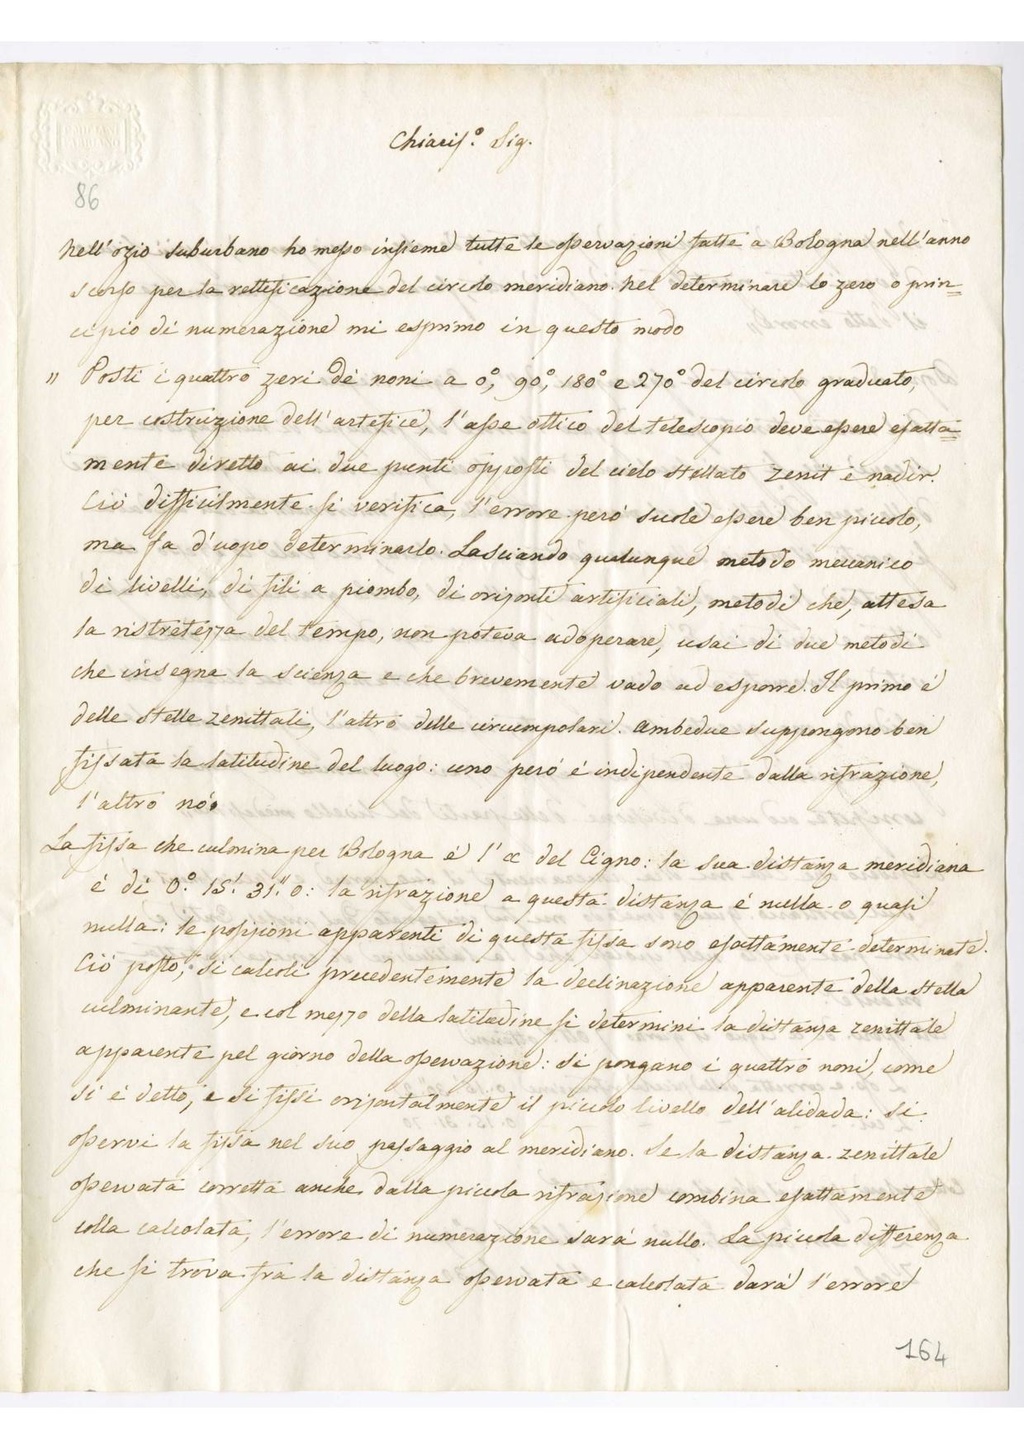 Chiaris.º Sig.
86
Nell'ozio suburbano ho messo insieme tutte le osservazioni fatte a Bologna nell'anno
scorso per la rettificazione del circolo meridiano. Nel determinare lo zero o prin=
cipio di numerazione mi esprimo in questo modo
" Posti i quattro zeri de' noni a 0°, 90°, 180° e 270° del circolo graduato,
per costruzione dell'artefice, l'asse ottico del telescopio deve essere esatta=
mente diretto ai due punti opposti del cielo stellato zenit e nadir.
Ciò difficilmente si verifica, l'errore però suole essere ben piccolo,
ma fa d'uopo determinarlo. Lasciando qualunque metodo meccanico
di livelli, di fili a piombo, di orizonti artificiali, metodi che, attesa
la ristretezza del tempo, non poteva adoperare, usai di due metodi
che insegna la scienza e che brevemente vado ad esporre. Il primo é
delle stelle zenittali, l'altro delle circumpolari. Ambedue suppongono ben
fissata la latitudine del luogo: uno però é indipendente dalla rifrazione,
l'altro nò.
La fissa che culmina per Bologna é l'α del Cigno: la sua distanza meridiana
é di 0.° 15.' 31." 0: la rifrazione a questa distanza é nulla o quasi
nulla: le posizioni apparenti di questa fissa sono esattamente determinate.
Ciò posto, si calcoli precedentemente la declinazione apparente della stella
culminante, e col mezzo della latitudine si determini la distanza zenittale
apparente pel giorno della osservazione: si pongano i quattro noni, come
si é detto, e si fissi orizontalmente il piccolo livello dell'alidada: si
osservi la fissa nel suo passaggio al meridiano. Se la distanza zenittale
osservata corretta anche dalla piccola rifrazione combina esattamente
colla calcolata, l'errore di numerazione sarà nullo. La piccola differenza
che si trova fra la distanza osservata e calcolata darà l'errore
164